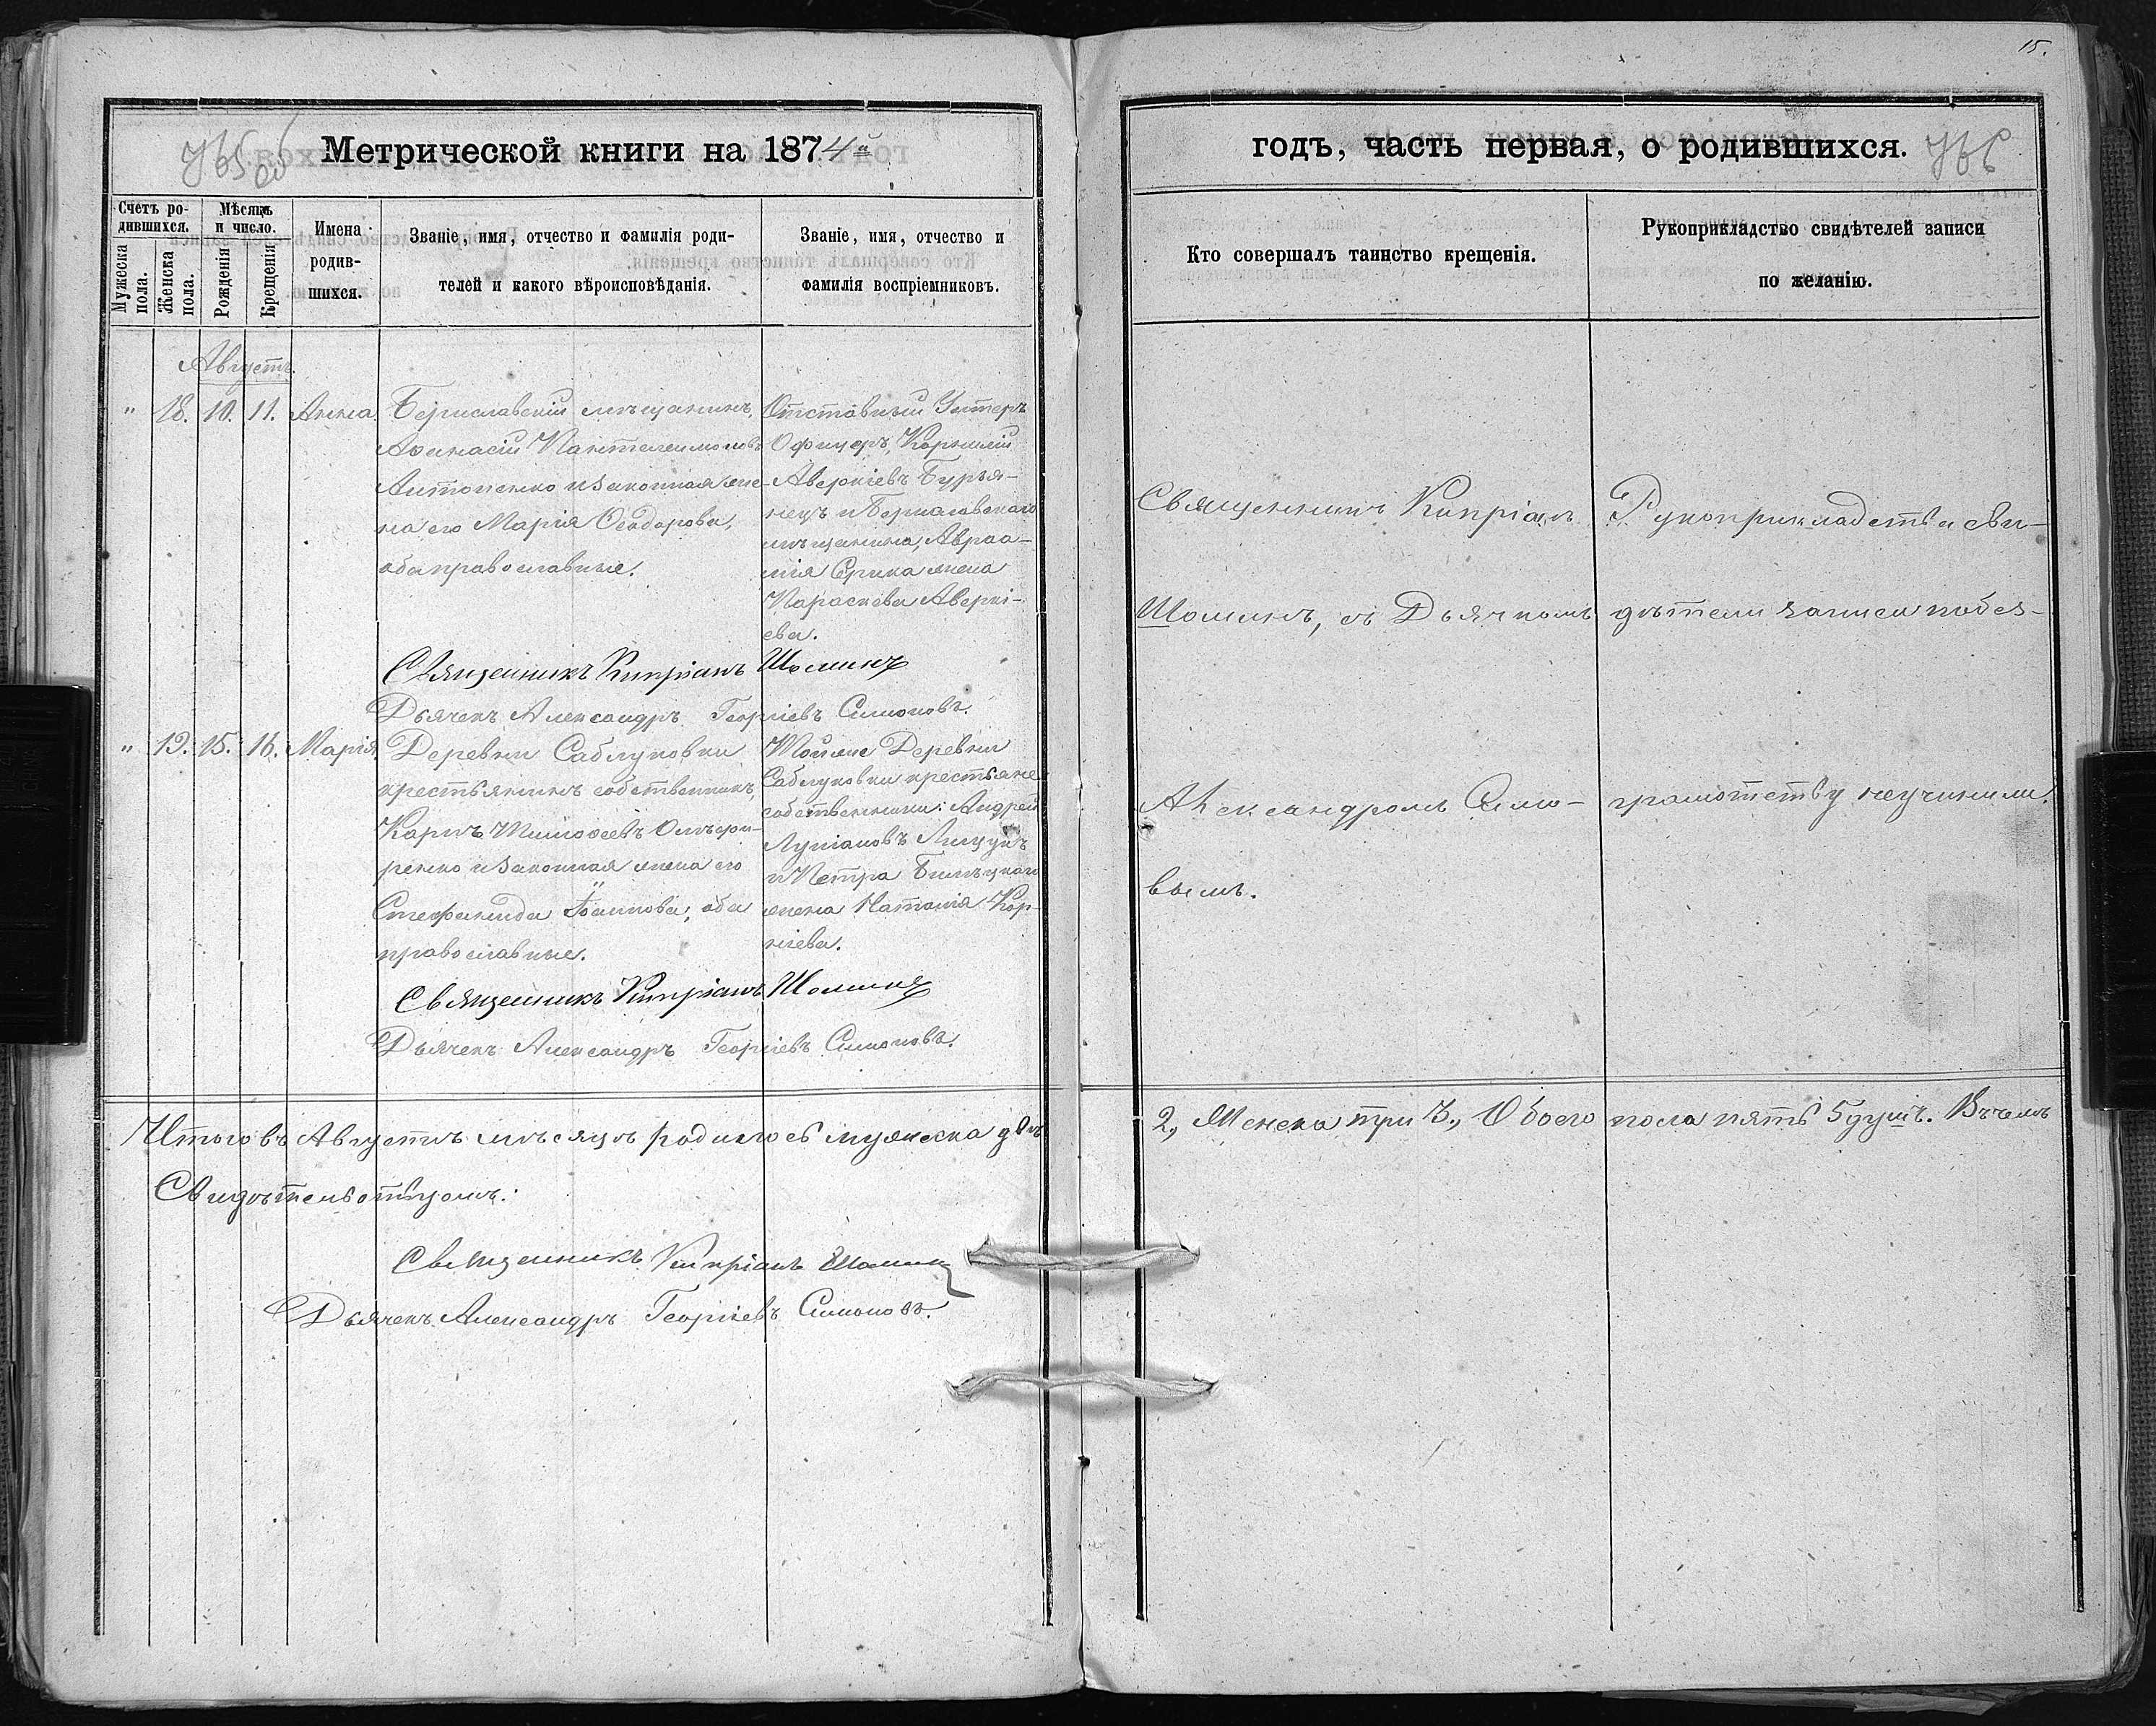 15.
Метрической книги на 1874й
Счетъ ро-
дившихся.
Мужеска
пола.
Женска
пола.
Мѣсяцъ
и число.
Рожденія
Крещенія
Имена
родив-
шихся.
Званіе, имя, отчество и фамилія роди-
телей и какого вѣроисповѣданія.
Званіе, имя, отчество и
фамилія воспріемниковъ.
Августъ.
" 18. 10. 11. Анна
Бериславскій мѣщанинъ,
Аѳанасій Пантелеимоновъ
Антоненко и законная же-
на его Марія Ѳеодорова,
оба православные.
Отставный Унтеръ
Офицеръ, Корнилій
Аверкіевъ Бурья-
нецъ и Бериславскаго
мѣщанина, Авраа-
мія жена
Параскева Аверкі-
ева.
Священникъ Кипріанъ Шоминъ
Дьячекъ Александръ Георгіевъ Симоновъ.
" 19. 15. 16. Марія
Деревни Саблуковки
крестьянинъ собственникъ,
Карпъ Тимоѳеевъ
и законная жена его
Стефанида Іоаннова, оба
православные.
Тойже Деревни
Саблуковки крестьяне
собственники: Андрей
и Петра
жена Наталія Кор-
ніева.
Священникъ Кипріанъ Шоминъ
Дьячекъ Александръ Георгіевъ Симоновъ.
Итого въ Августѣ мѣсяцѣ родилось мужеска два
Свидѣтельствуемъ:
Священникъ Кипріанъ Шоминъ
Дьячекъ Александръ Георгіевъ Симоновъ.
годъ, часть первая, о родившихся.
Кто совершалъ таинство крещенія.
Рукоприкладство свидѣтелей записи
по желанію.
Священникъ Кипріанъ
Шоминъ, съ Дьячкомъ
Александромъ Симо-
вымъ.
Рукоприкладства сви-
дѣтели записи побез-
грамотству неучинили.
2, Женска три 3., Обоего пола пять 5 душъ. Въ чемъ